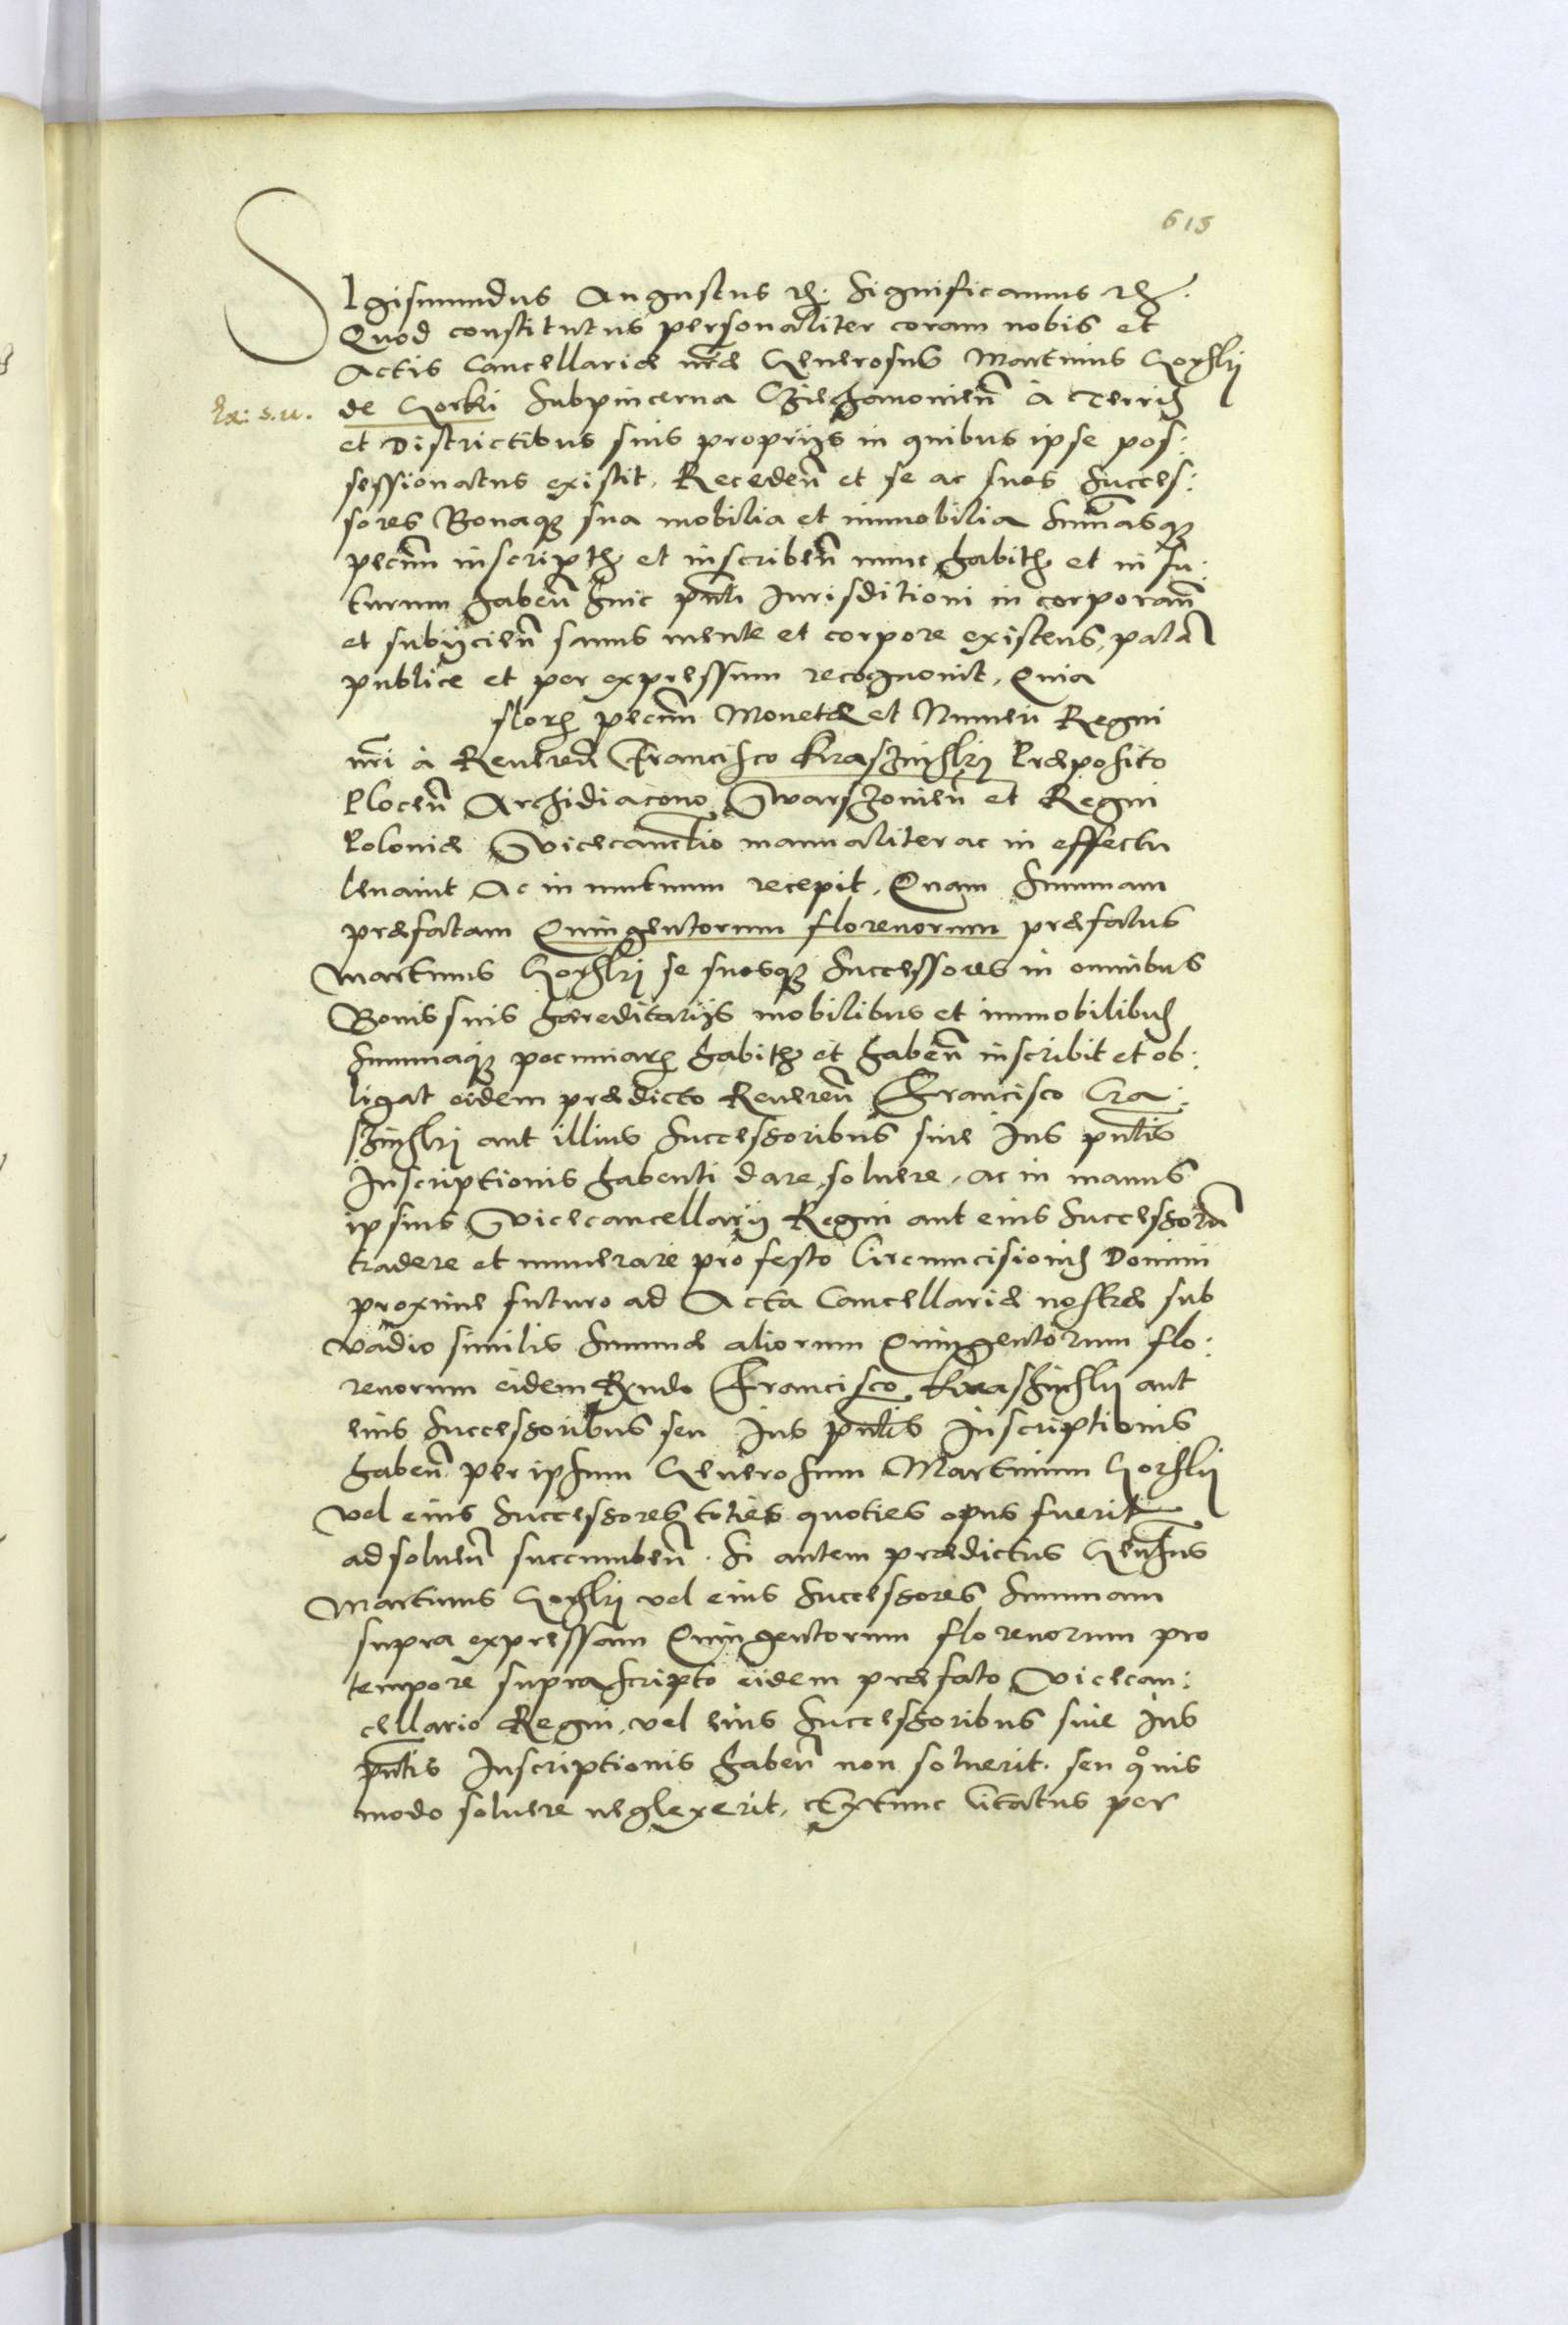 615
SIgismundus Augustus etc: Significamus etc.
Quod constitutus personaliter coram nobis et
Actis Cancellariæ nr̃æ Generosus Martinus Gorski
Ex: s.u.
de Gorki Subpincerna Cziechanouien̄ à Terris
et Districtibus suis proprijs in quibus ipse pos:
sessionatus existit. Receden̄ et se ac suos Succes:
sores Bonaqȝ sua mobilia et immobilia Sum̄asqȝ
pecun̄ inscript et inscriben̄ nunc habit et in fu:
turum haben̄ huic pn̄ti Jurisditioni in corporan̄
et subijcien̄ sanus mente et corpore existens, palā
publice et per expressum recognouit, Quia
flor pecun̄ Monetæ et Numeri Regni
nr̃i à Reueren̄ Francisco Kraszinski Præposito
Plocen̄ Archidiacono Warszouien̄ et Regni
Poloniæ Vicecanc̄rio manualiter ac in effectu
leuauit Ac in mutuum recepit. Quam Summam
præfatam Quingentorum florenorum præfatus
Martinus Gorski se suosqȝ Successores in omnibus
Bonis suis hæreditarijs mobilibus et immobilibus
Summaqȝ pecuniar habit et haben̄ inscribit et ob:
ligat eidem prædicto Reueren̄ Francisco Cra:
szinski aut illius Successoribus siue Jus pn̄tis
Inscriptionis habenti dare, soluere, ac in manus
ipsius Vicecancellarij Regni aut eius Successorū
tradere et numerare pro festo Circumcisionis Domini
proxime futuro ad Acta Cancellariæ nostræ sub
vadio similis Summæ aliorum Quingentorum flo:
renorum eidem Rx̄ndo Francisco Kraszinskij aut
eius Successoribus seu Jus pn̄tis Inscriptionis
haben̄ per ipsum Generosum Martinum Gorskij
vel eius Successores toties quoties opus fuerit
ad soluen̄ succumben̄. Si autem prædictus Gen̄sus
Martinus Gorski vel eius Successores Summam
supra expressam Quingentorum florenorum pro
tempore suprascripto eidem præfato Vicecan:
cellario Regni, vel eius Successoribus siue Jus
pn̄tis Inscriptionis haben̄ non soluerit. seu qouis
modo soluere neglexerit, Extunc citatus per